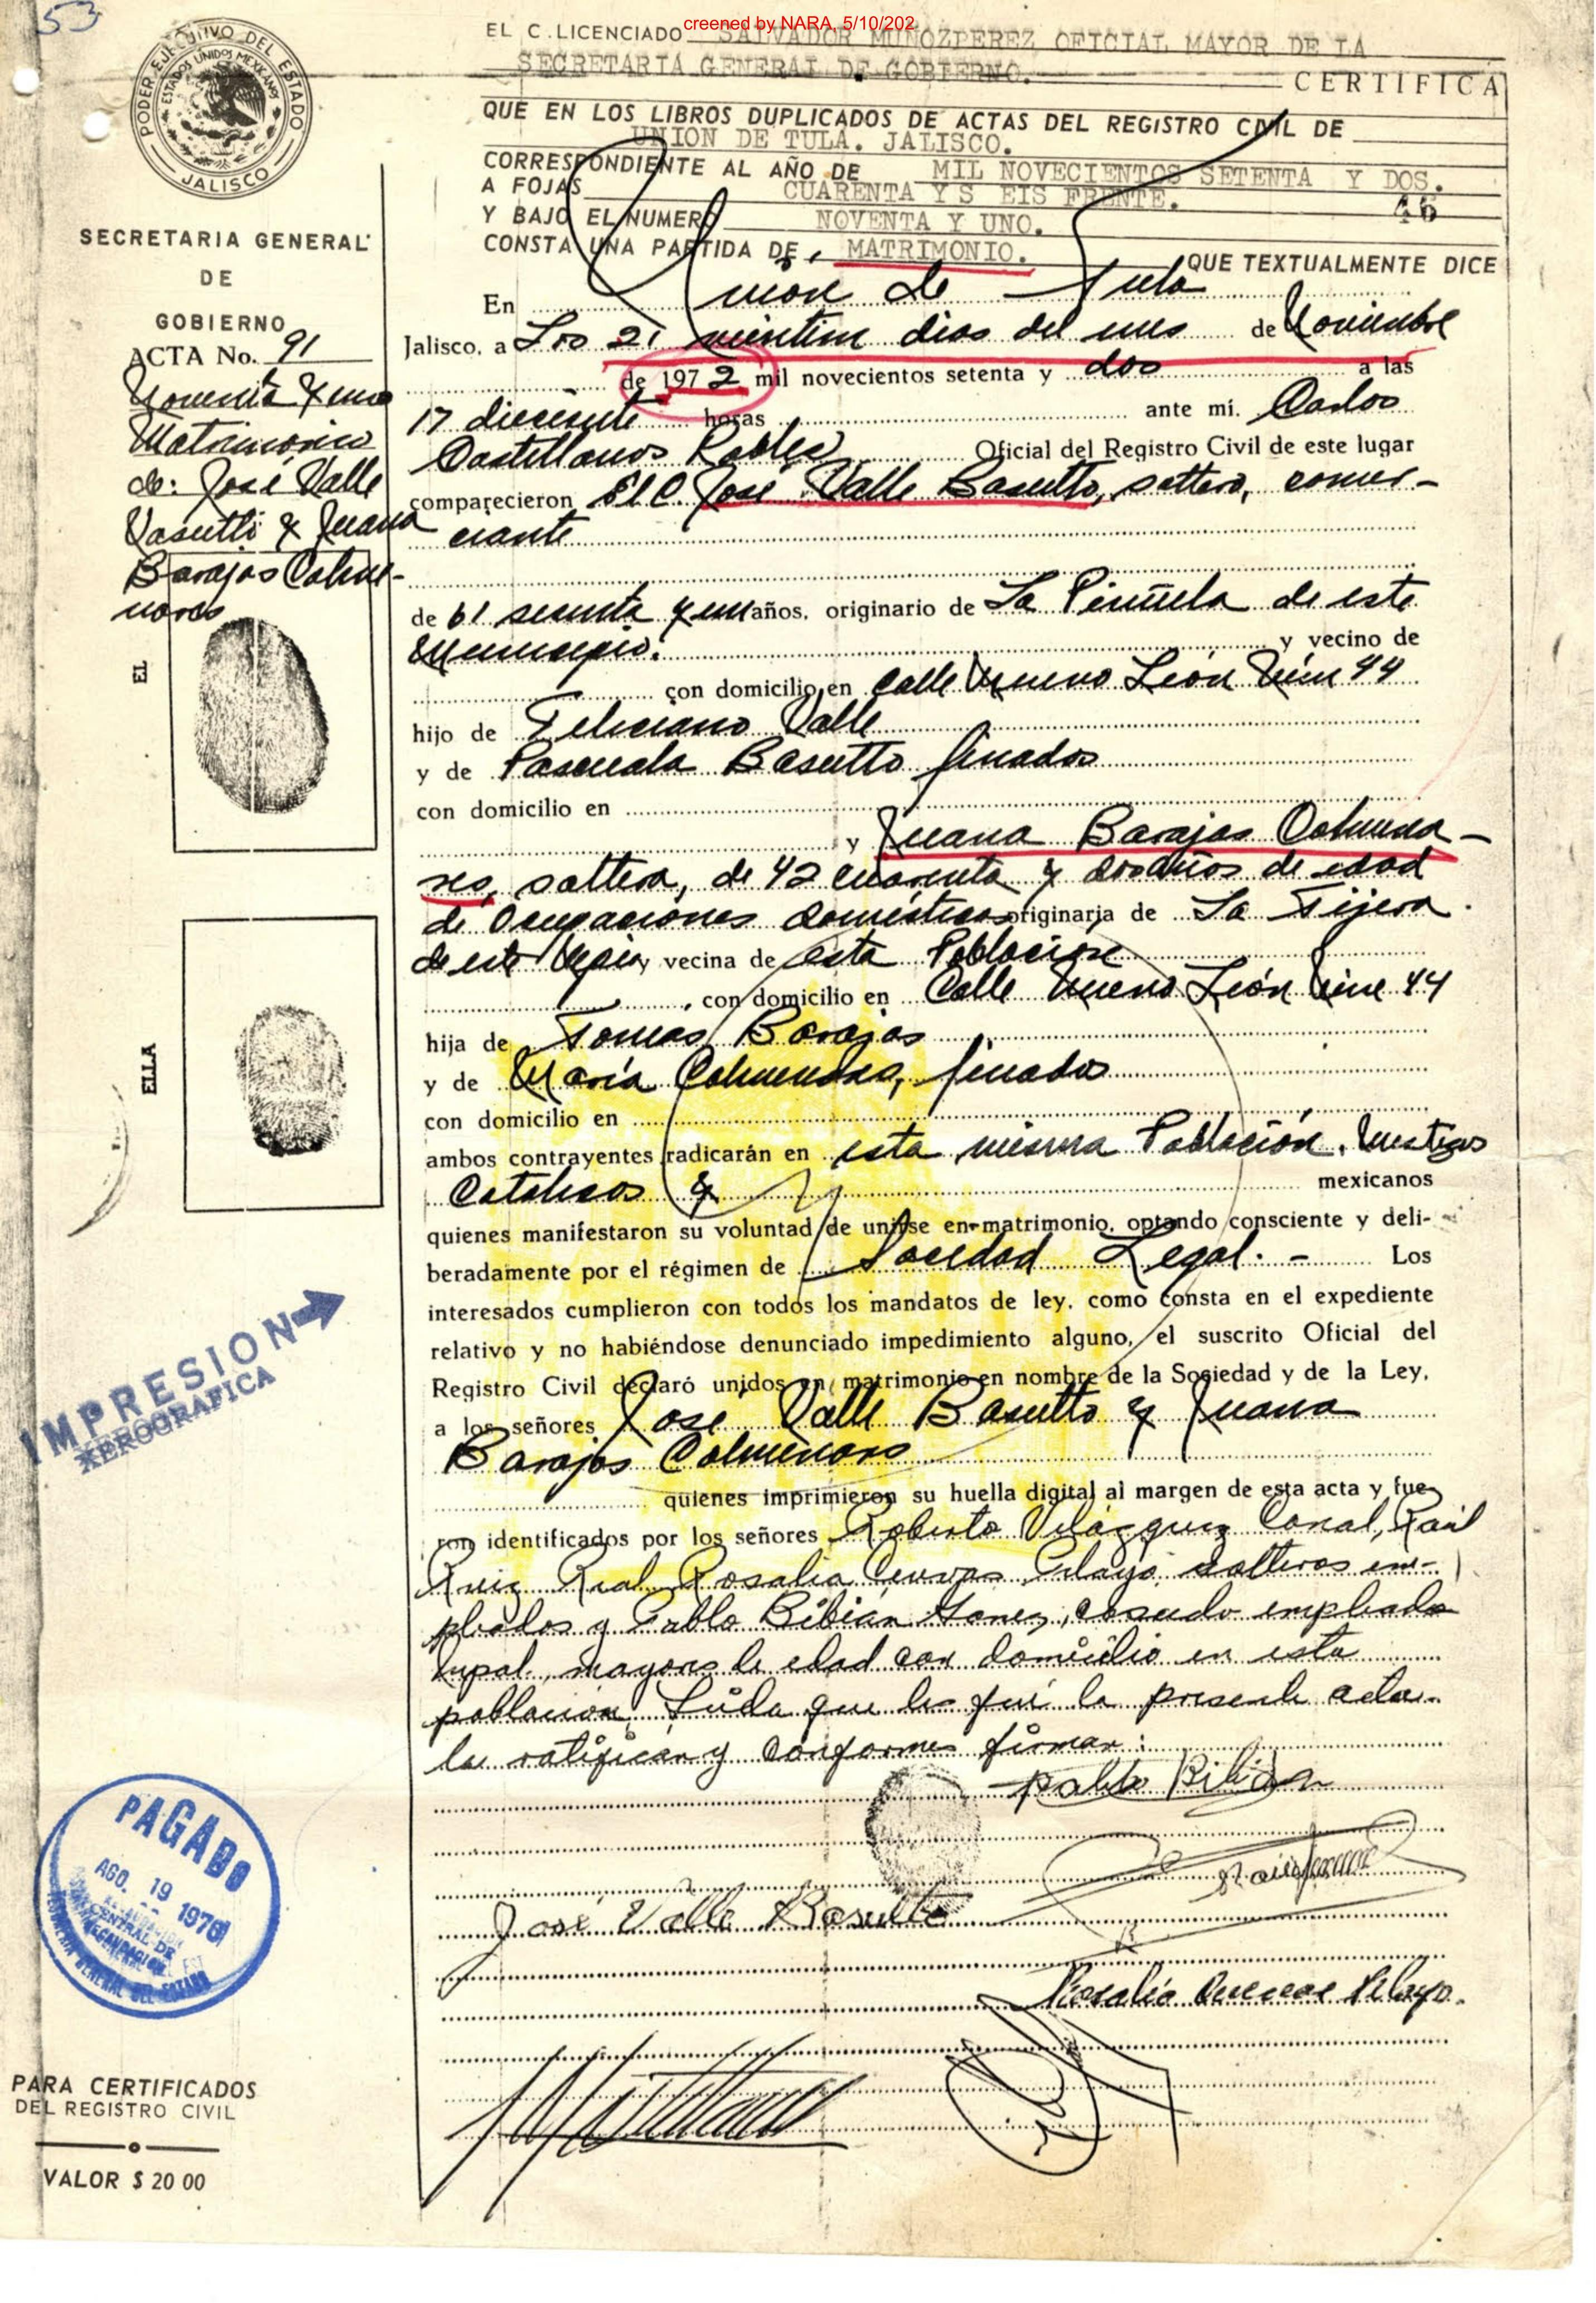 53
creened by NARA, 5/10/202
EL C. LICENCIADO SALVADOR MUÑOZPEREZ OFICIAL MAYOR DE LA
SECRETARIA GENERAL DE GOBIERNO.
CERTIFICA
QUE EN LOS LIBROS DUPLICADOS DE ACTAS DEL REGISTRO CIVIL DE
UNION DE TULA. JALISCO.
CORRESPONDIENTE AL AÑO DE MIL NOVECIENTOS SETENTA Y DOS.
A FOJAS CUARENTA Y S EIS FRENTE. 46
Y BAJO EL NUMERO NOVENTA Y UNO.
CONSTA UNA PARTIDA DE MATRIMONIO.
QUE TEXTUALMENTE DICE
PODER EJECUTIVO DEL ESTADO
ESTADOS UNIDOS MEXICANOS
JALISCO
SECRETARIA GENERAL
DE
GOBIERNO
ACTA No. 91
Noventa y uno
Matrimonio
de: José Valle
Vasutto y Juana
Barajas Colme-
nares
EL
ELLA
En Unión de Tula
Jalisco, a Los 21 veintiun dias del mes de Noviembre
de 1972 mil novecientos setenta y dos a las
17 diecisiete horas ante mí. Carlos
Castellanos Robles Oficial del Registro Civil de este lugar
comparecieron El C. José Valle Basutto, soltero, comer-
ciante
de 61 sesenta y un años, originario de La Piñuela de este
Municipio. y vecino de
con domicilio en Calle Nuevo León Núm 44
hijo de Feliciano Valle
y de Pascuala Basutto finados
con domicilio en
y Juana Barajas Colmena-
res, soltera, de 42 cuarenta y dos años de edad
de Ocupaciones domésticas originaria de La Tijera.
de este Mpio y vecina de esta Población
con domicilio en Calle Nuevo León Núm 44
hija de Tomas Barajas
y de María Colmenares, finados
con domicilio en
ambos contrayentes radicarán en esta misma Población. Mestizos
Católicos y mexicanos
quienes manifestaron su voluntad de unirse en matrimonio, optando consciente y deli-
beradamente por el régimen de Sociedad Legal. - Los
interesados cumplieron con todos los mandatos de ley, como consta en el expediente
relativo y no habiéndose denunciado impedimiento alguno, el suscrito Oficial del
Registro Civil declaró unidos en matrimonio en nombre de la Sociedad y de la Ley,
a los señores José Valle Basutto y Juana
Barajas Colmenares
quienes imprimieron su huella digital al margen de esta acta y fue-
ron identificados por los señores Roberto Velázquez Coral, Raúl
Ruiz Real Rosalia Cuevas Pelayo, solteros em-
pleados y Pablo Bibián Gomez, casado empleado
mpal, mayores de edad con domicilio en esta
población. Leída que les fué la presente acta
la ratifican y conformes firman:
Pablo Bibián
José Valle Basulto
Rosalia Cuevas Pelayo.
IMPRESION
XEROGRAFICA
PAGADO
AGO. 19 1976
CENTRAL DE
RECAUDACION
GENERAL DEL ESTADO
PARA CERTIFICADOS
DEL REGISTRO CIVIL
VALOR $ 20 00